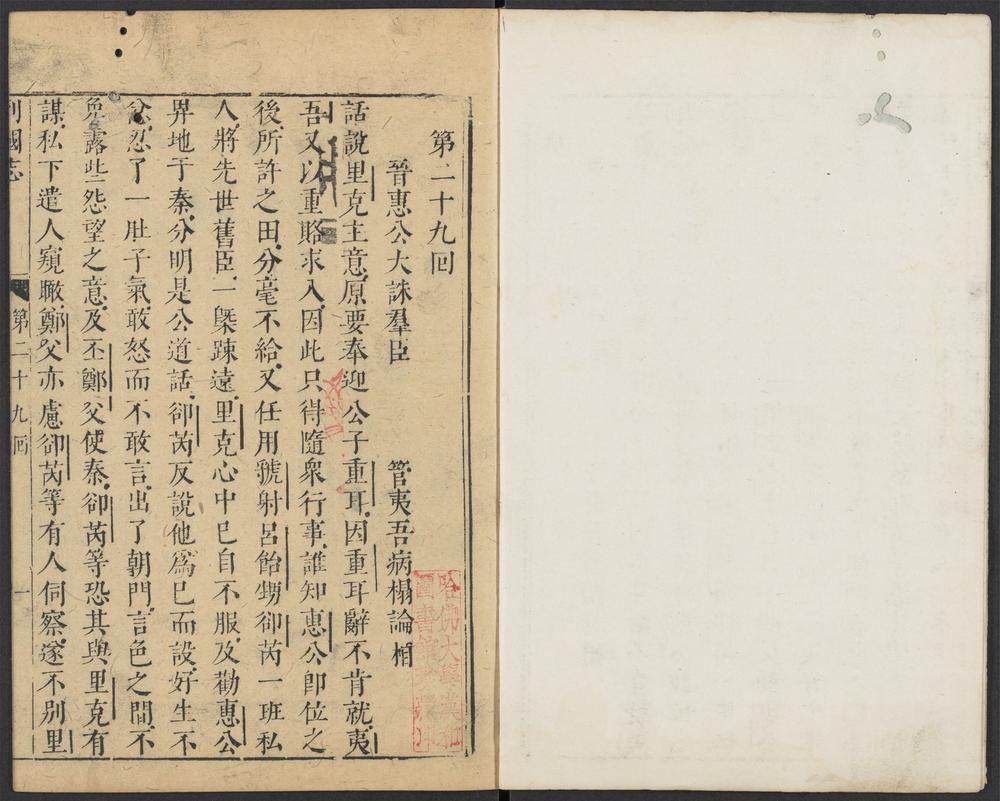 第二十九回
晉惠公大誅羣臣　管夷吾病榻論相
話說里克主意原要奉迎公子重耳因重耳辭不肯就夷
吾又以重賂求入因此只得隨衆行事誰知惠公卽位之
後所許之田分毫不給又任用虢射呂飴甥卻芮一班私
人將先世舊臣一槩踈遠里克心中已自不服及勸惠公
畀地于秦分明是公道話卻芮反說他爲已而設好生不
忿忍了一肚子氣敢怒而不敢言出了朝門言色之間不
免露些怨望之意及丕鄭父使秦卻芮等恐其與里克有
謀私下遣人窺瞰鄭父亦慮卻芮等有人伺察遂不別里
列國志　第二十九回　一
哈佛大學漢和
圖書館